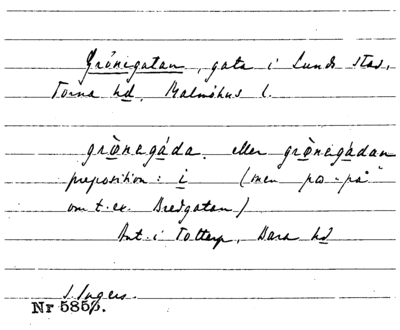 Grönegatan, gata i Lunds stad,
Torna hd, Malmöhus l.
grø̀negáda. eller grø̀negàdan
preposition: i (men pɑ - på
om t. ex. Bredgatan)
Ant. i Tottarp, Bara hd
I. Ingers.
Nr 5858.